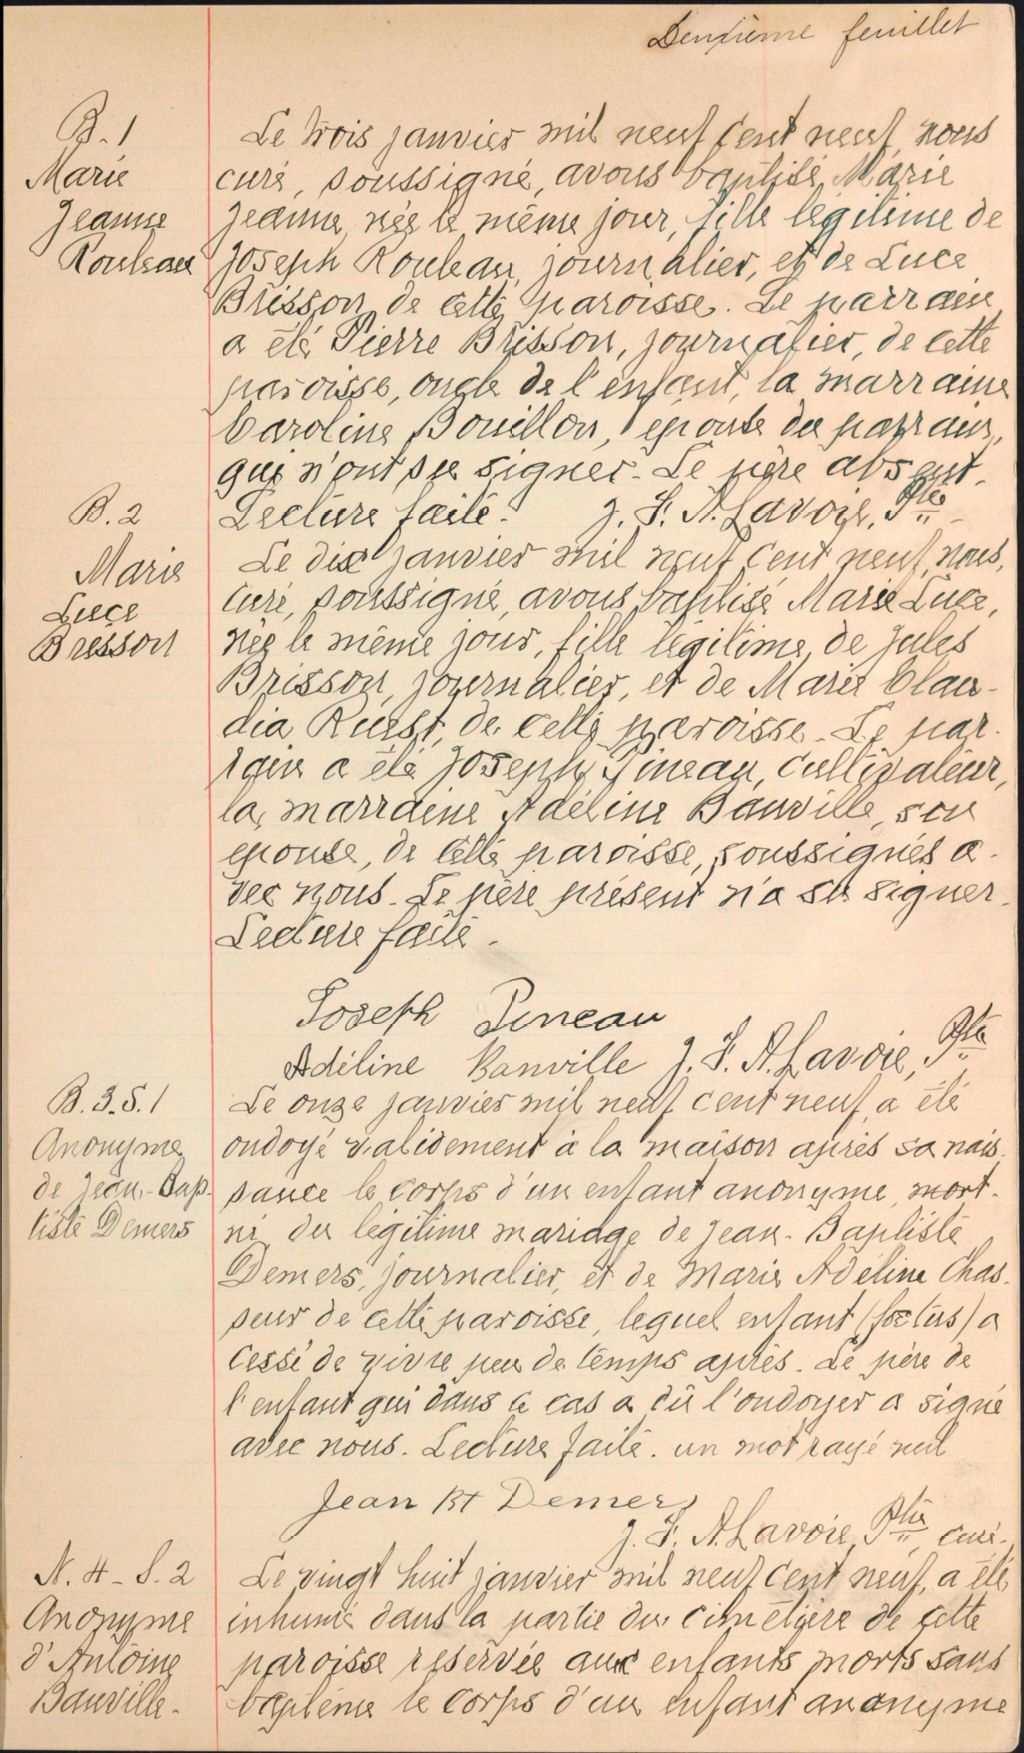 Deuxième feuillet
B. 1
Marie
Jeanne
Rouleau
Le trois janvier mil neuf cent neuf, nous
curé, soussigné, avons baptisé Marie
Jeanne, née le même jour, fille légitime de
Joseph Rouleau, journalier, et de Luce
Brisson, de cette paroisse. Le parrain
a été Pierre Brisson, journalier, de cette
paroisse, oncle de l'enfant, la marraine
Caroline Bouillon, épouse du parrain,
qui n'ont su signer. Le père absent.
Lecture faite. J. S. A. Lavoie, Ptre
B. 2
Marie
Luce
Bresson
Le dix janvier mil neuf cent neuf, nous,
curé, soussigné, avons baptisé Marie Luce,
née le même jour, fille légitime, de Jules
Brisson, journalier, et de Marie Clau-
dia Ruest, de cette paroisse. Le par-
rain a été Joseph Pineau, cultivateur,
la marraine Adéline Banville, son
épouse, de cette paroisse, soussignés a-
vec nous. Le père présent n'a su signer.
Lecture faite.
Joseph Pineau
Adéline Banville J. S. A. Lavoie, Ptre
B. 3. S. 1
Anonyme
de Jean-Bap-
tiste Demers
Le onze janvier mil neuf cent neuf, a été
ondoyé validement à la maison après sa nais-
sance le corps d'un enfant anonyme, mort-
né du légitime mariage de Jean-Baptiste
Demers, journalier, et de Marie Adéline Chas-
seur de cette paroisse, lequel enfant (foetus) a
cessé de vivre peu de temps après. Le père de
l'enfant qui dans ce cas a dû l'ondoyer a signé
avec nous. Lecture faite. un mot rayé nul
Jean Bt Demers
J. S. A. Lavoie, Ptre, curé.
N. 4 - S. 2
Anonyme
d'Antoine
Banville.
Le vingt huit janvier mil neuf cent neuf, a été
inhumé dans la partie du cimetière de cette
paroisse reservée aux enfants morts sans
baptême le corps d'un enfant anonyme